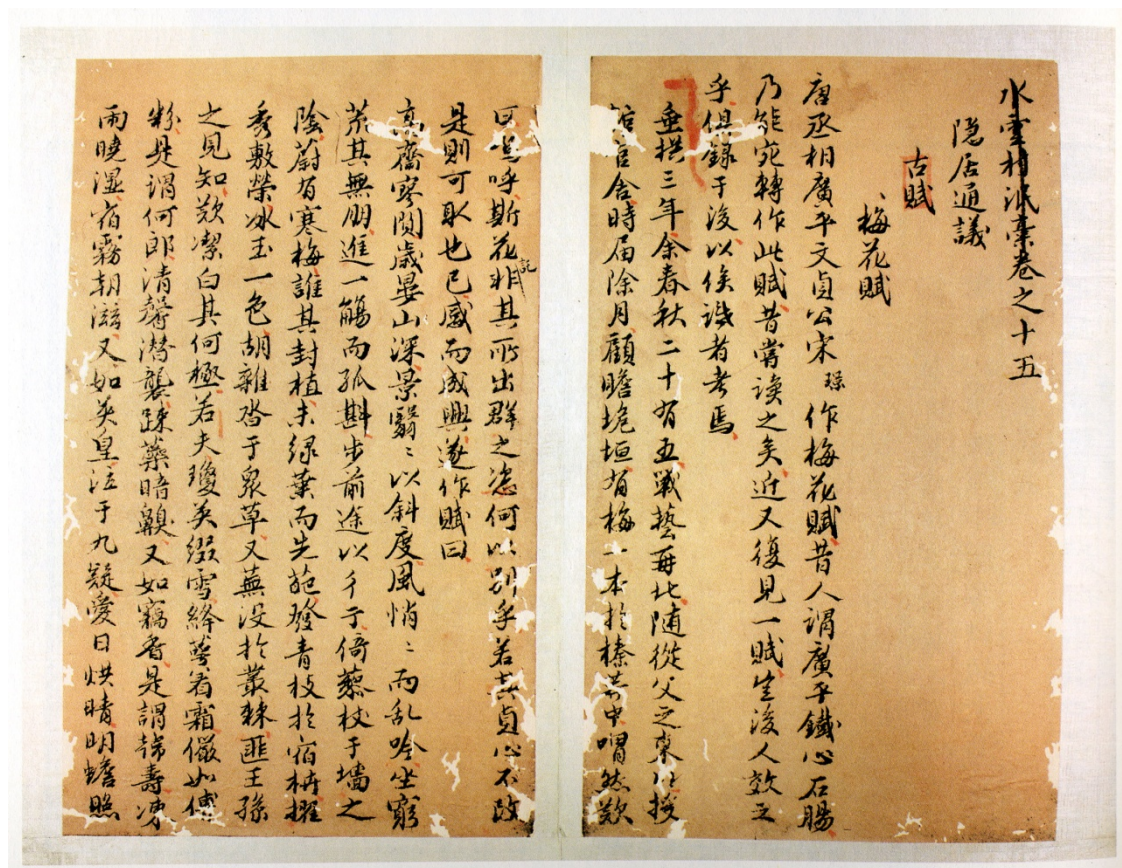 水雲村泯藁卷之十五
隐居通議
古賦
梅花賦
唐丞相廣平文貞公宋璟作梅花賦昔人謂廣平鐵心石腸
乃能宛轉作此賦昔嘗讀之矣近又復見一賦生後人效之
乎俱録于後以俟識者考焉
垂拱三年余春秋二十有五戰藝再北随從父之東川授
舘官舍時届除月顧瞻圮垣有梅一本於榛莽中喟然歎
曰嗚呼斯花非其所出群之姿何以别乎若其貞心不改
是則可取也已感而成興遂作賦曰
高齋寥闃歲晏山深景翳〻以斜度風悄〻而乱吟坐窮
荒其無朋進一觴而孤斟步前途以彳亍倚藜杖于墻之
陰蔚有寒梅誰其封植未緑葉而先葩發青枝於宿枿擢
秀敷榮冰玉一色胡雜沓于衆草又蕪没於叢棘匪王孫
之見知歎潔白其何極若夫瓊英缀雪絳萼着霜儼如傅
粉是謂何郎清馨潜襲踈蘂暗臭又如竊香是謂韓壽凍
雨曉濕宿霧朝滋又如英皇泣于九疑愛日烘晴明蟾照